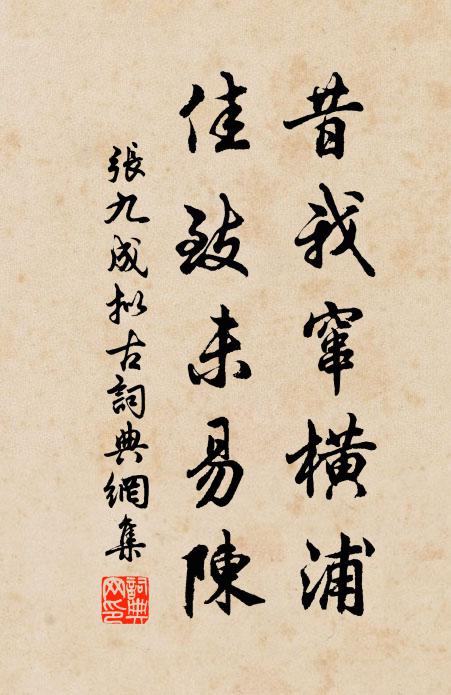 昔我窜橫浦
佳致未易陳
張九成拟古詞典網集
詞典
网印